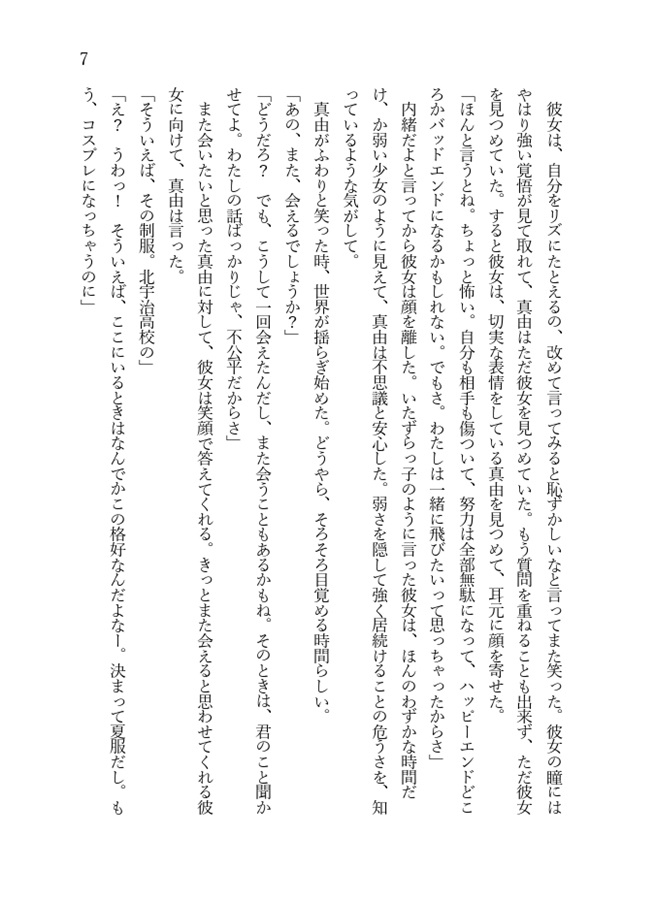 7
彼女は、自分をリズにたとえるの、改めて言ってみると恥ずかしいなと言ってまた笑った。彼女の瞳には
やはり強い覚悟が見て取れて、真由はただ彼女を見つめていた。もう質問を重ねることも出来ず、ただ彼女
を見つめていた。すると彼女は、切実な表情をしている真由を見つめて、耳元に顔を寄せた。
「ほんと言うとね。ちょっと怖い。自分も相手も傷ついて、努力は全部無駄になって、ハッピーエンドどこ
ろかバッドエンドになるかもしれない。でもさ。わたしは一緒に飛びたいって思っちゃったからさ」
内緒だよと言ってから彼女は顔を離した。いたずらっ子のように言った彼女は、ほんのわずかな時間だ
け、か弱い少女のように見えて、真由は不思議と安心した。弱さを隠して強く居続けることの危うさを、知
っているような気がして。
真由がふわりと笑った時、世界が揺らぎ始めた。どうやら、そろそろ目覚める時間らしい。
「あの、また、会えるでしょうか？」
「どうだろ？　でも、こうして一回会えたんだし、また会うこともあるかもね。そのときは、君のこと聞か
せてよ。わたしの話ばっかりじゃ、不公平だからさ」
また会いたいと思った真由に対して、彼女は笑顔で答えてくれる。きっとまた会えると思わせてくれる彼
女に向けて、真由は言った。
「そういえば、その制服。北宇治高校の」
「え？　うわっ！　そういえば、ここにいるときはなんでかこの格好なんだよなー。決まって夏服だし。も
う、コスプレになっちゃうのに」